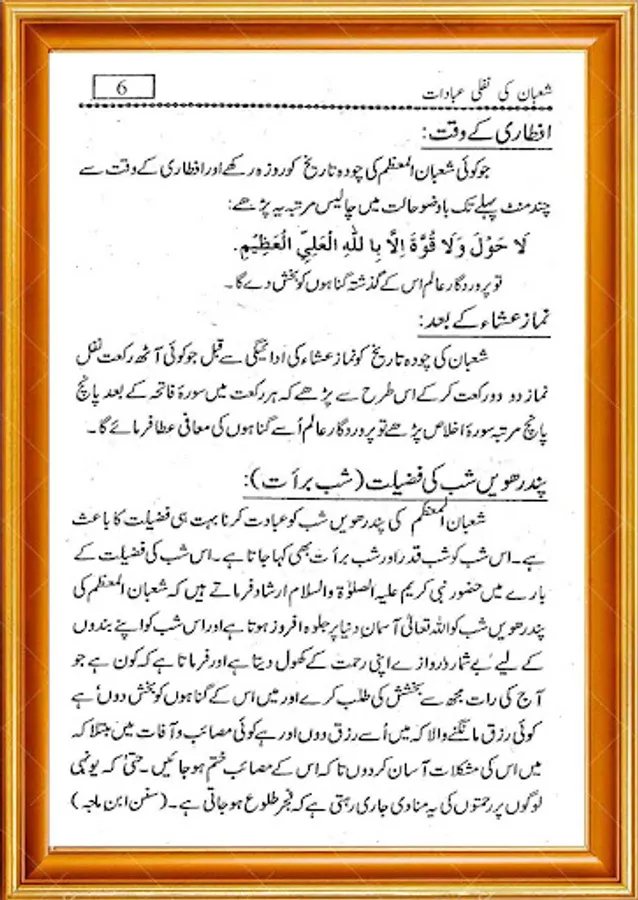 شعبان کی نفلی عبادات
6
افطاری کے وقت:
جو کوئی شعبان المعظم کی چودہ تاریخ کو روزہ رکھے اور افطاری کے وقت سے
چند منٹ پہلے تک باوضو حالت میں چالیس مرتبہ یہ پڑھے:
لَا حَوْلَ وَلَا قُوَّةَ اِلَّا بِا للّٰهِ الْعَلِيِّ الْعَظِيْمِ.
تو پروردگار عالم اس کے گذشتہ گناہوں کو بخش دے گا۔
نماز عشاء کے بعد:
شعبان کی چودہ تاریخ کو نماز عشاء کی ادائیگی سے قبل جو کوئی آٹھ رکعت نفل
نماز دو دو رکعت کر کے اس طرح سے پڑھے کہ ہر رکعت میں سورۂ فاتحہ کے بعد پانچ
پانچ مرتبہ سورۂ اخلاص پڑھے تو پروردگار عالم اُسے گناہوں کی معافی عطا فرمائے گا۔
پندرھویں شب کی فضیلت (شب برأت):
شعبان المعظم کی پندرھویں شب کو عبادت کرنا بہت ہی فضیلت کا باعث
ہے۔ اس شب کو شب قدر اور شب برأت بھی کہا جاتا ہے۔ اس شب کی فضیلت کے
بارے میں حضور نبی کریم علیہ الصلوٰۃ والسلام ارشاد فرماتے ہیں کہ شعبان المعظم کی
پندرھویں شب کو اللہ تعالیٰ آسمان دنیا پر جلوہ افروز ہوتا ہے اور اس شب کو اپنے بندوں
کے لیے بے شمار دروازے اپنی رحمت کے کھول دیتا ہے اور فرماتا ہے کہ کون ہے جو
آج کی رات مجھ سے بخشش کی طلب کرے اور میں اس کے گناہوں کو بخش دوں ہے
کوئی رزق مانگنے والا کہ میں اُسے رزق دوں اور ہے کوئی مصائب و آفات میں مبتلا کہ
میں اس کی مشکلات آسان کر دوں تا کہ اس کے مصائب ختم ہو جائیں۔ حتیٰ کہ یونہی
لوگوں پر رحمتوں کی یہ منادی جاری رہتی ہے کہ فجر طلوع ہو جاتی ہے۔ (سنن ابن ماجہ)